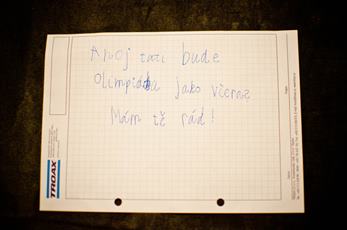 Ahoj tati bude
Olimpiádu jako včeraz
Mám tě rád!
TROAX